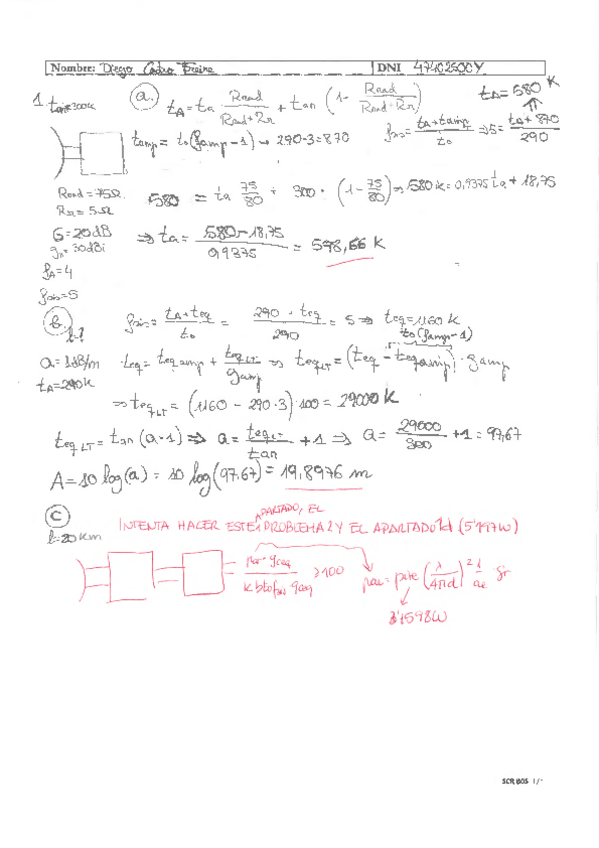 Nombre: Diego Castro Freire DNI 47402500Y
1. tamb=300K a. tA = ta Rrad/(Rrad+RΩ) + tan (1 - Rrad/(Rrad+RΩ)) tA = 580 K
tamp = to(famp-1) → 290·3=870 fsis = (tA+tamp)/to ⇒ 5 = (tA+870)/290
Rrad = 75Ω 580 = ta 75/80 + 300 · (1 - 75/80) ⇒ 580 K = 0,9375 ta + 18,75
RΩ = 5Ω
G = 20dB ⇒ ta = (580-18,75)/0,9375 = 598,66 K
30dBi
fA=4
fsis=5
b. l? fsis = (tA+teq)/to = (290 + teq)/290 = 5 ⇒ teq = 1160 K
to(famp-1)
a = 1dB/m teq = teqamp + teqLT/gamp ⇒ teqLT = (teq - teqamp) · gamp
tA=290K
⇒ teqLT = (1160 - 290·3)·100 = 29000 K
teqLT = tan (a-1) ⇒ a = teqLT/tan + 1 ⇒ a = 29000/300 + 1 = 97,67
A = 10 log(a) = 10 log(97,67) = 19,8976 m
C INTENTA HACER ESTE APARTADO, EL PROBLEMA 2 Y EL APARTADO 1d (5'197W)
l=20Km
≥100
3'1598W
SCR BOS 1/